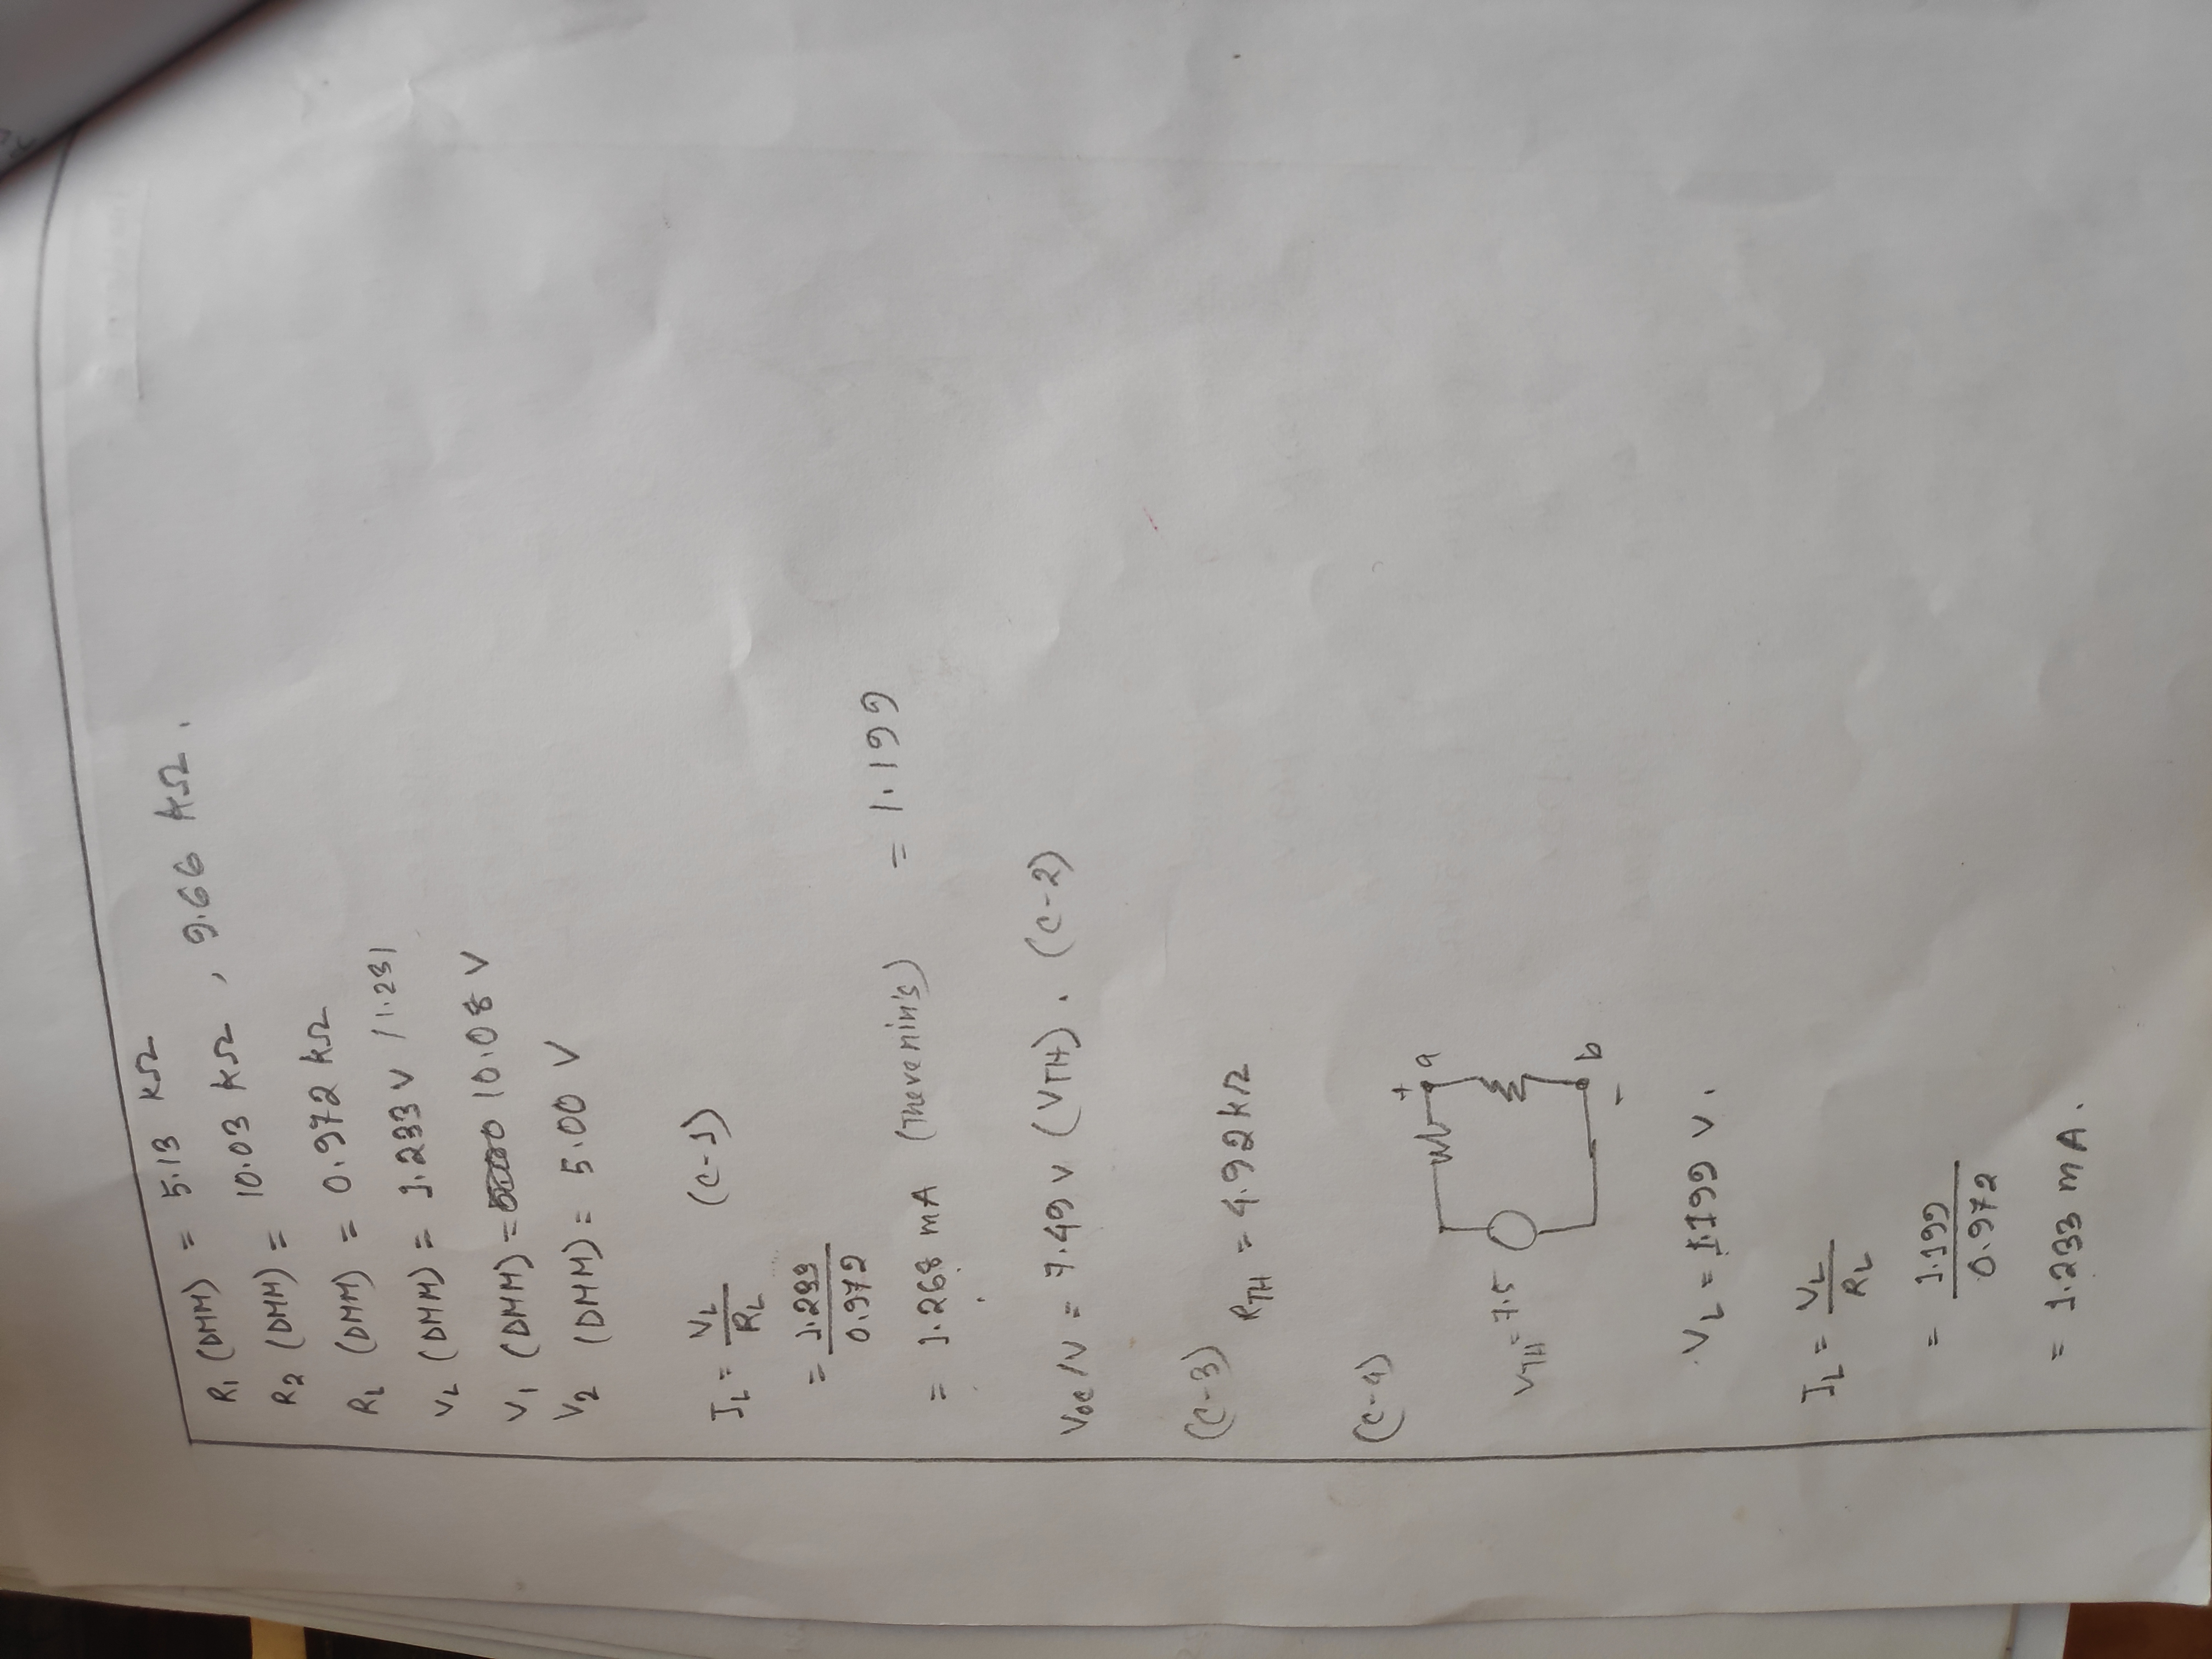 R₁ (DMM) = 5.13 kΩ
R₂ (DMM) = 10.03 kΩ , 9.66 kΩ.
R_L (DMM) = 0.972 kΩ
V_L (DMM) = 1.233 V / 1.231
V₁ (DMM) = 10.08 V
V₂ (DMM) = 5.00 V
I_L = V_L / R_L (C-1)
= 1.233 / 0.972
= 1.268 mA (Thevenin's) = 1.199
Voc/V = 7.49 V (VTH). (C-2)
(C-3)
R_TH = 4.92 kΩ
(C-4)
+
a
V_TH = 7.5
b
-
V_L = 1.199 V.
I_L = V_L / R_L
= 1.199 / 0.972
= 1.233 mA.